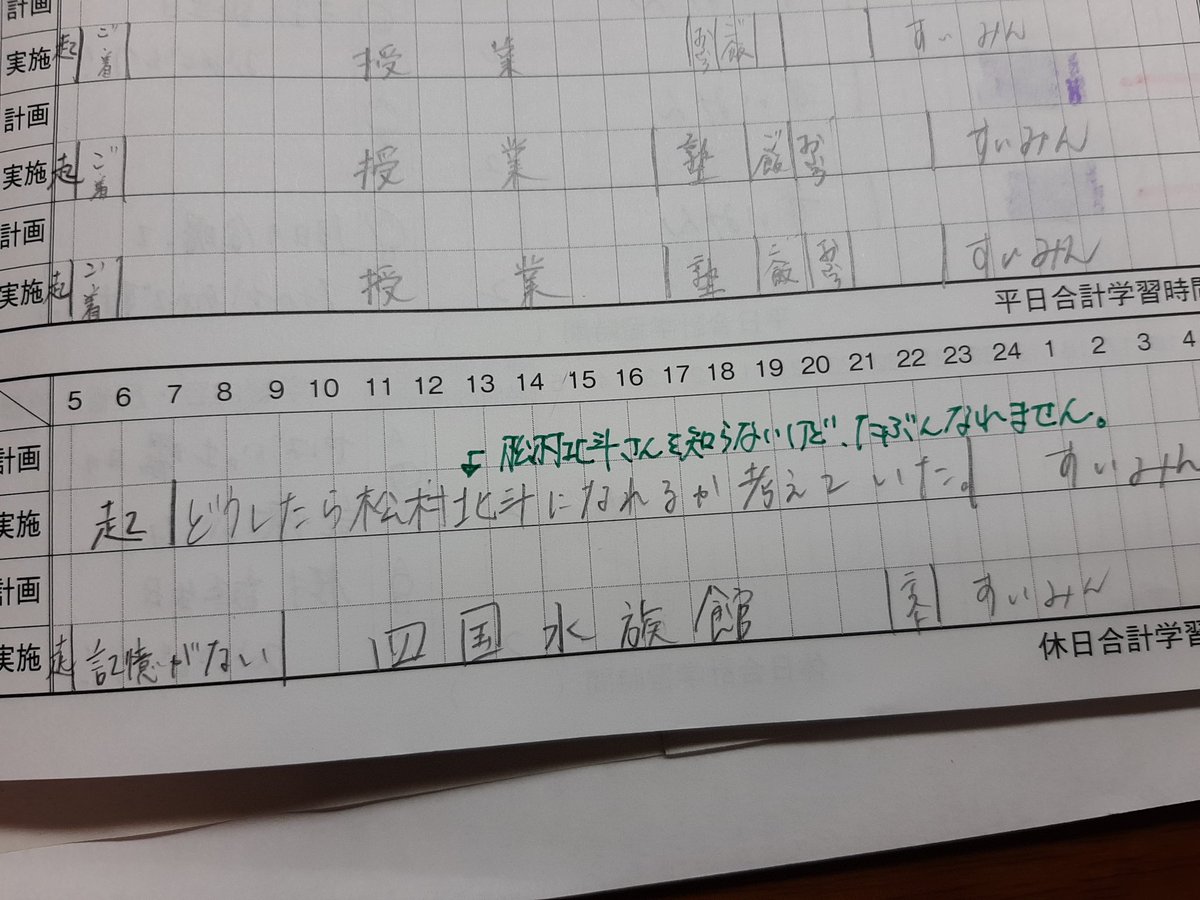 計画
実施 起 ご 着 授業 おふろ ご飯 すいみん
計画
実施 起 ご 着 授業 塾 ご飯 おふろ すいみん
計画
実施 起 ご 着 授業 塾 ご飯 おふろ すいみん
平日合計学習時間
5 6 7 8 9 10 11 12 13 14 15 16 17 18 19 20 21 22 23 24 1 2 3 4
計画 松村北斗さんを知らないけど、たぶんなれません。
実施 起 どうしたら松村北斗になれるか考えていた。 すいみん
計画
実施 起 記憶がない 四国水族館 すいみん
休日合計学習